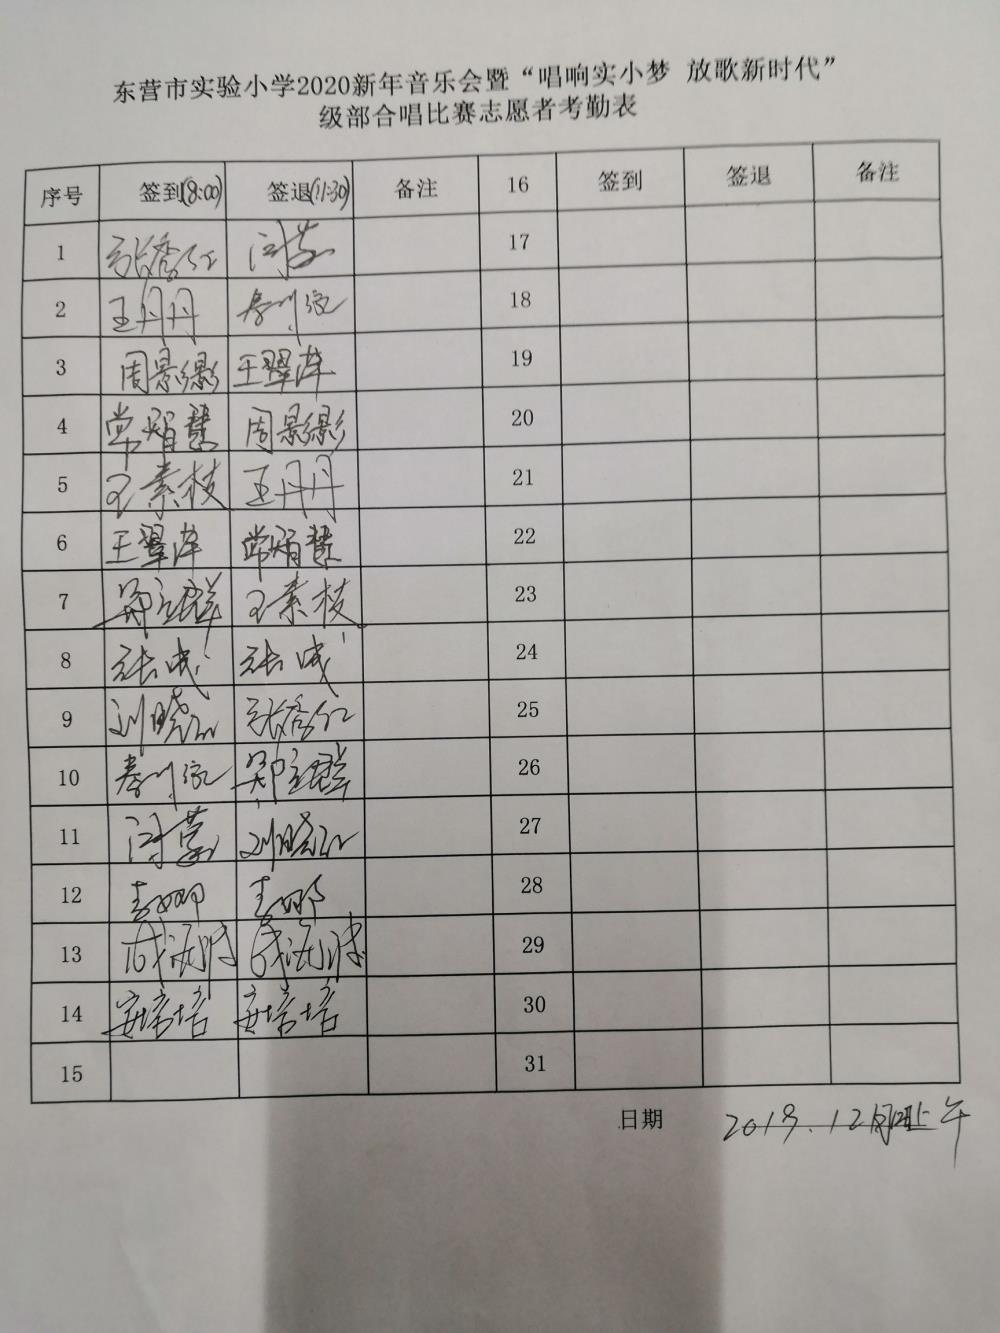 东营市实验小学2020新年音乐会暨“唱响实小梦 放歌新时代”
级部合唱比赛志愿者考勤表
序号 签到(8:00) 签退(11:30) 备注 16 签到 签退 备注
1 张秀红 闫营 17
2 王丹丹 秦川 18
3 周影影 王翠萍 19
4 常娟慧 周影影 20
5 王素枝 王丹丹 21
6 王翠萍 常娟慧 22
7 郑立群 王素枝 23
8 张成 张成 24
9 刘晓红 张秀红 25
10 秦川 郑立群 26
11 27 刘晓红
12 李娜 李娜 28
13 29
14 安培培 安培培 30
15 31
日期 2019.12月 上午